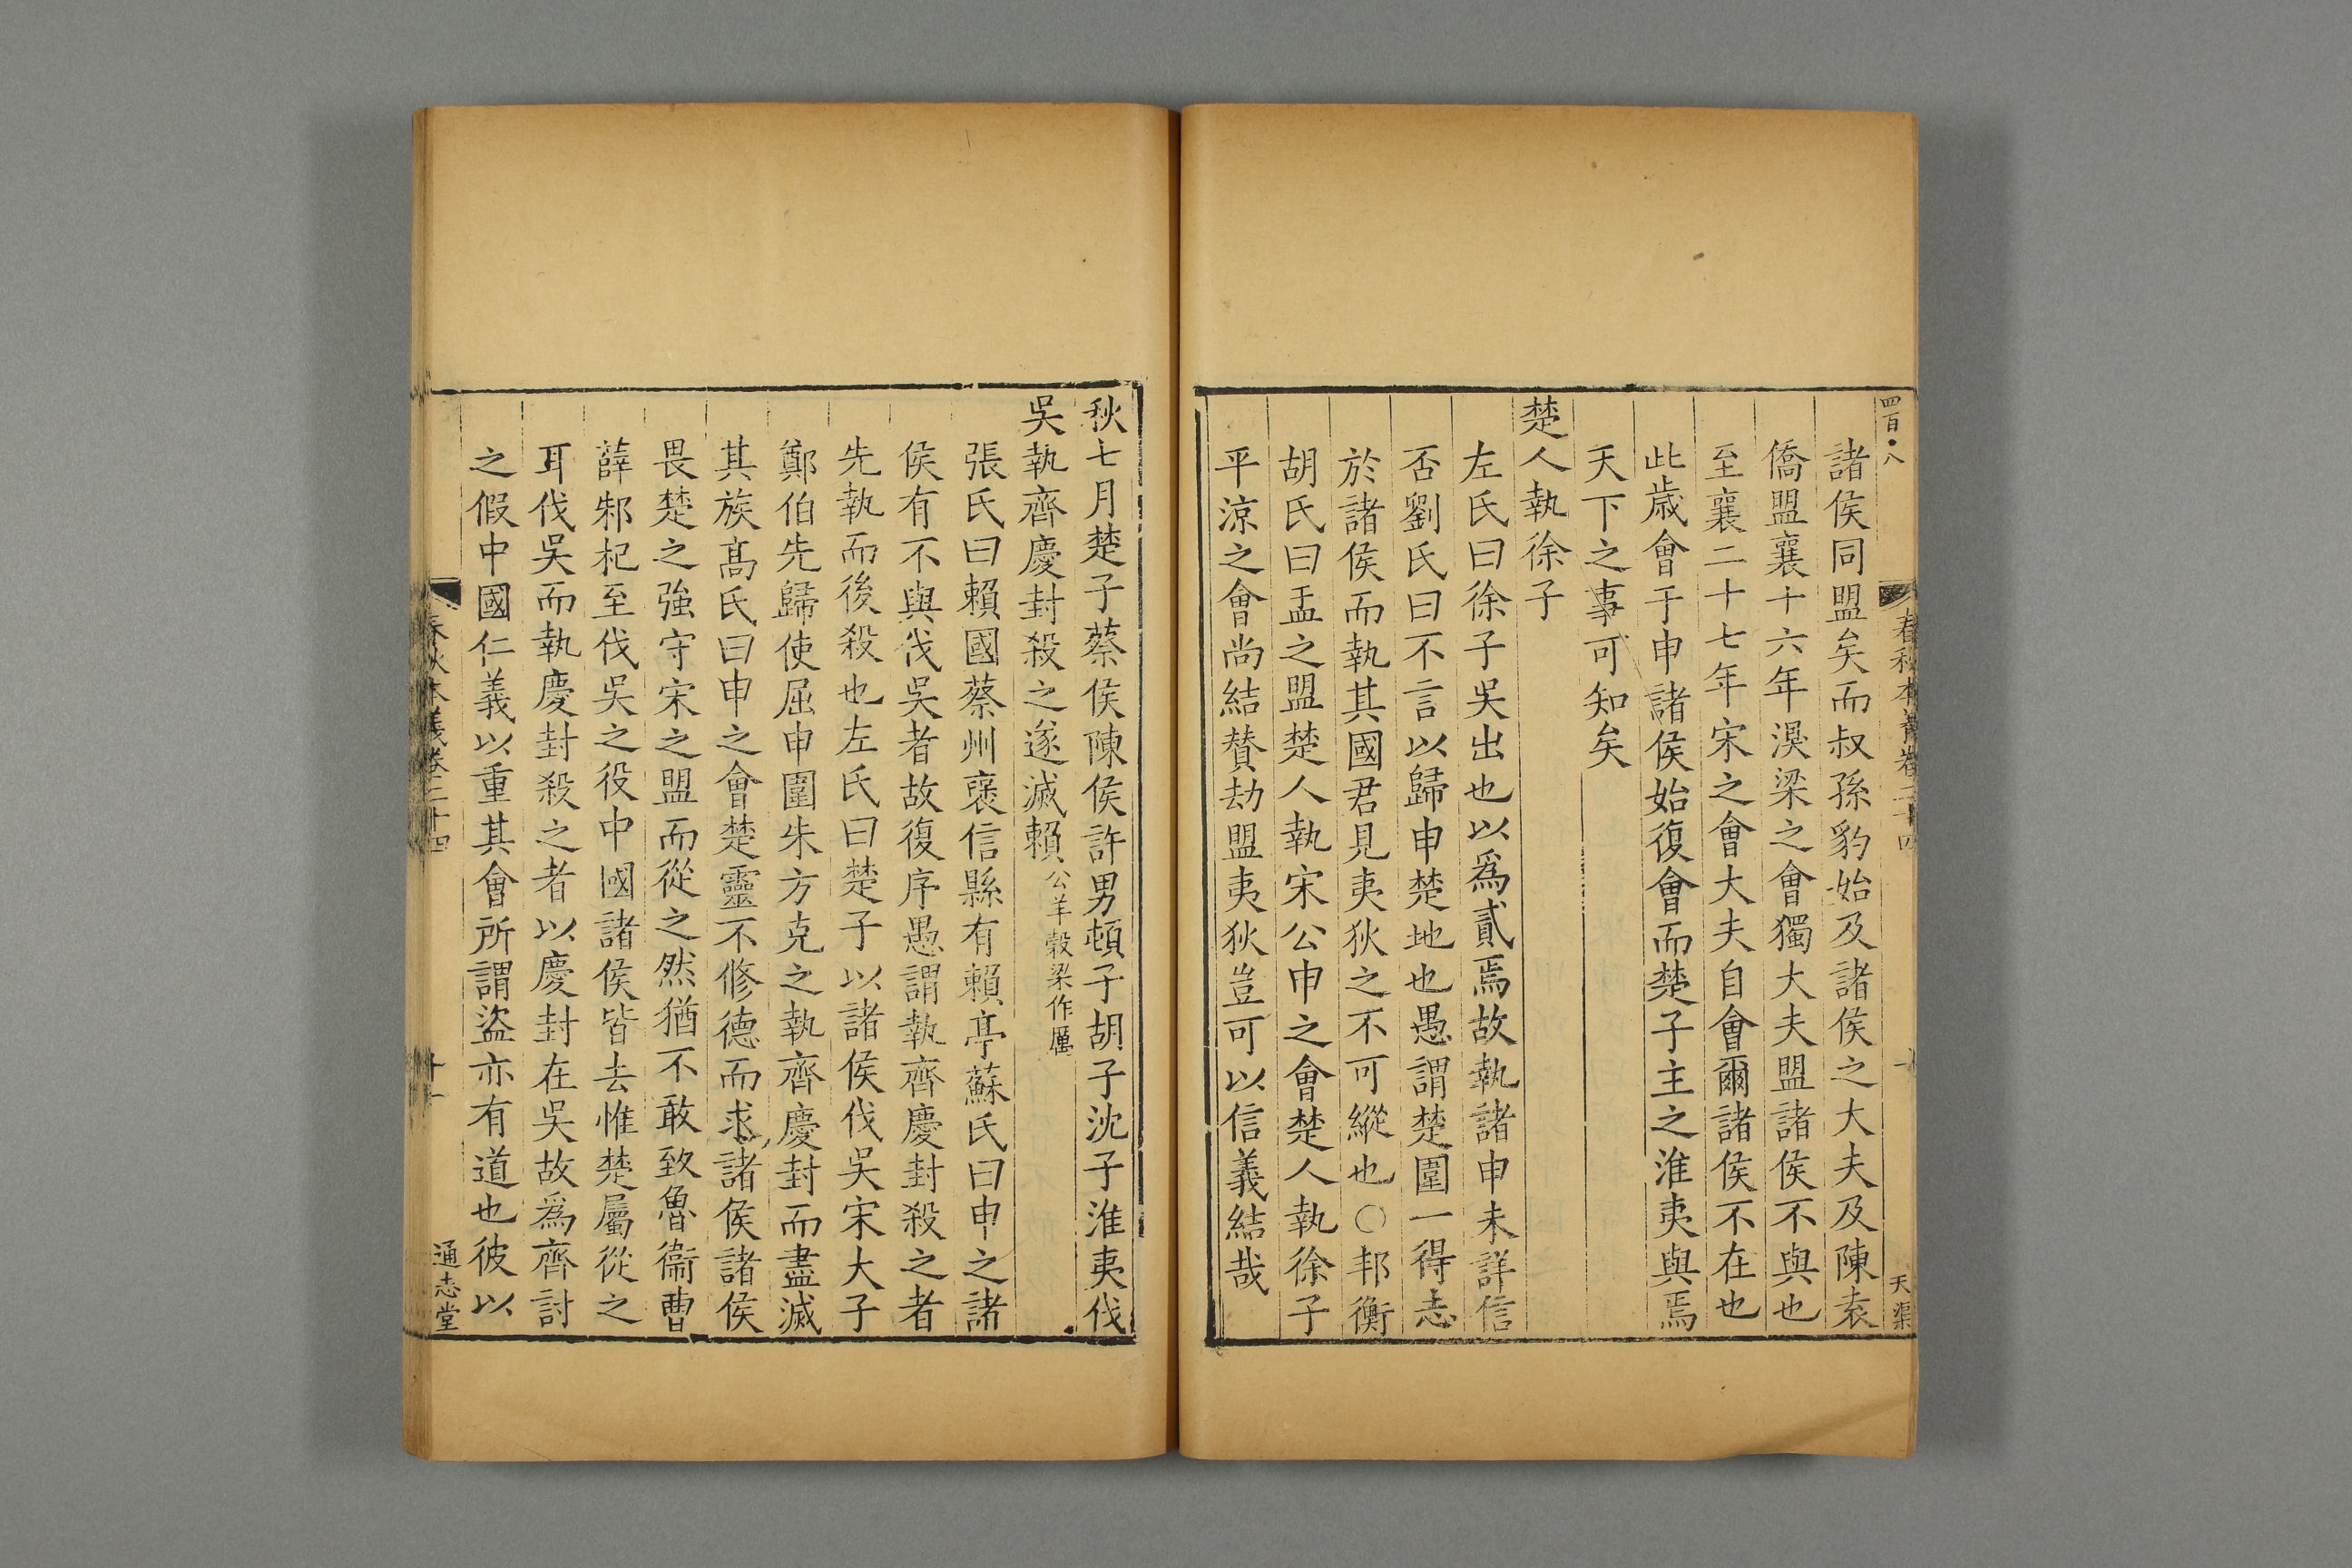 四百八
春秋本義卷二十四
天渠
諸侯同盟矣而叔孫豹始及諸侯之大夫及陳袁
僑盟襄十六年溴梁之會獨大夫盟諸侯不與也
至襄二十七年宋之會大夫自會爾諸侯不在也
此歲會于申諸侯始復會而楚子主之淮夷與焉
天下之事可知矣
楚人執徐子
左氏曰徐子吳出也以爲貳焉故執諸申未詳信
否劉氏曰不言以歸申楚地也愚謂楚圍一得志
於諸侯而執其國君見夷狄之不可縱也○邦衡
胡氏曰盂之盟楚人執宋公申之會楚人執徐子
平涼之會尚結贊劫盟夷狄豈可以信義結哉
秋七月楚子蔡侯陳侯許男頓子胡子沈子淮夷伐
吳執齊慶封殺之遂滅賴公羊榖梁作厲
張氏曰賴國蔡州襃信縣有賴亭蘇氏曰申之諸
侯有不與伐吳者故復序愚謂執齊慶封殺之者
先執而後殺也左氏曰楚子以諸侯伐吳宋大子
鄭伯先歸使屈申圍朱方克之執齊慶封而盡滅
其族髙氏曰申之會楚靈不修德而求諸侯諸侯
畏楚之強守宋之盟而從之然猶不敢致魯衞曹
薛邾杞至伐吳之役中國諸侯皆去惟楚屬從之
耳伐吳而執慶封殺之者以慶封在吳故爲齊討
之假中國仁義以重其會所謂盜亦有道也彼以
春秋本義卷二十四
十一
通志堂